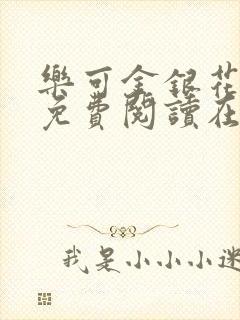 樂可金銀花
免費閱讀在
我是小小小迷